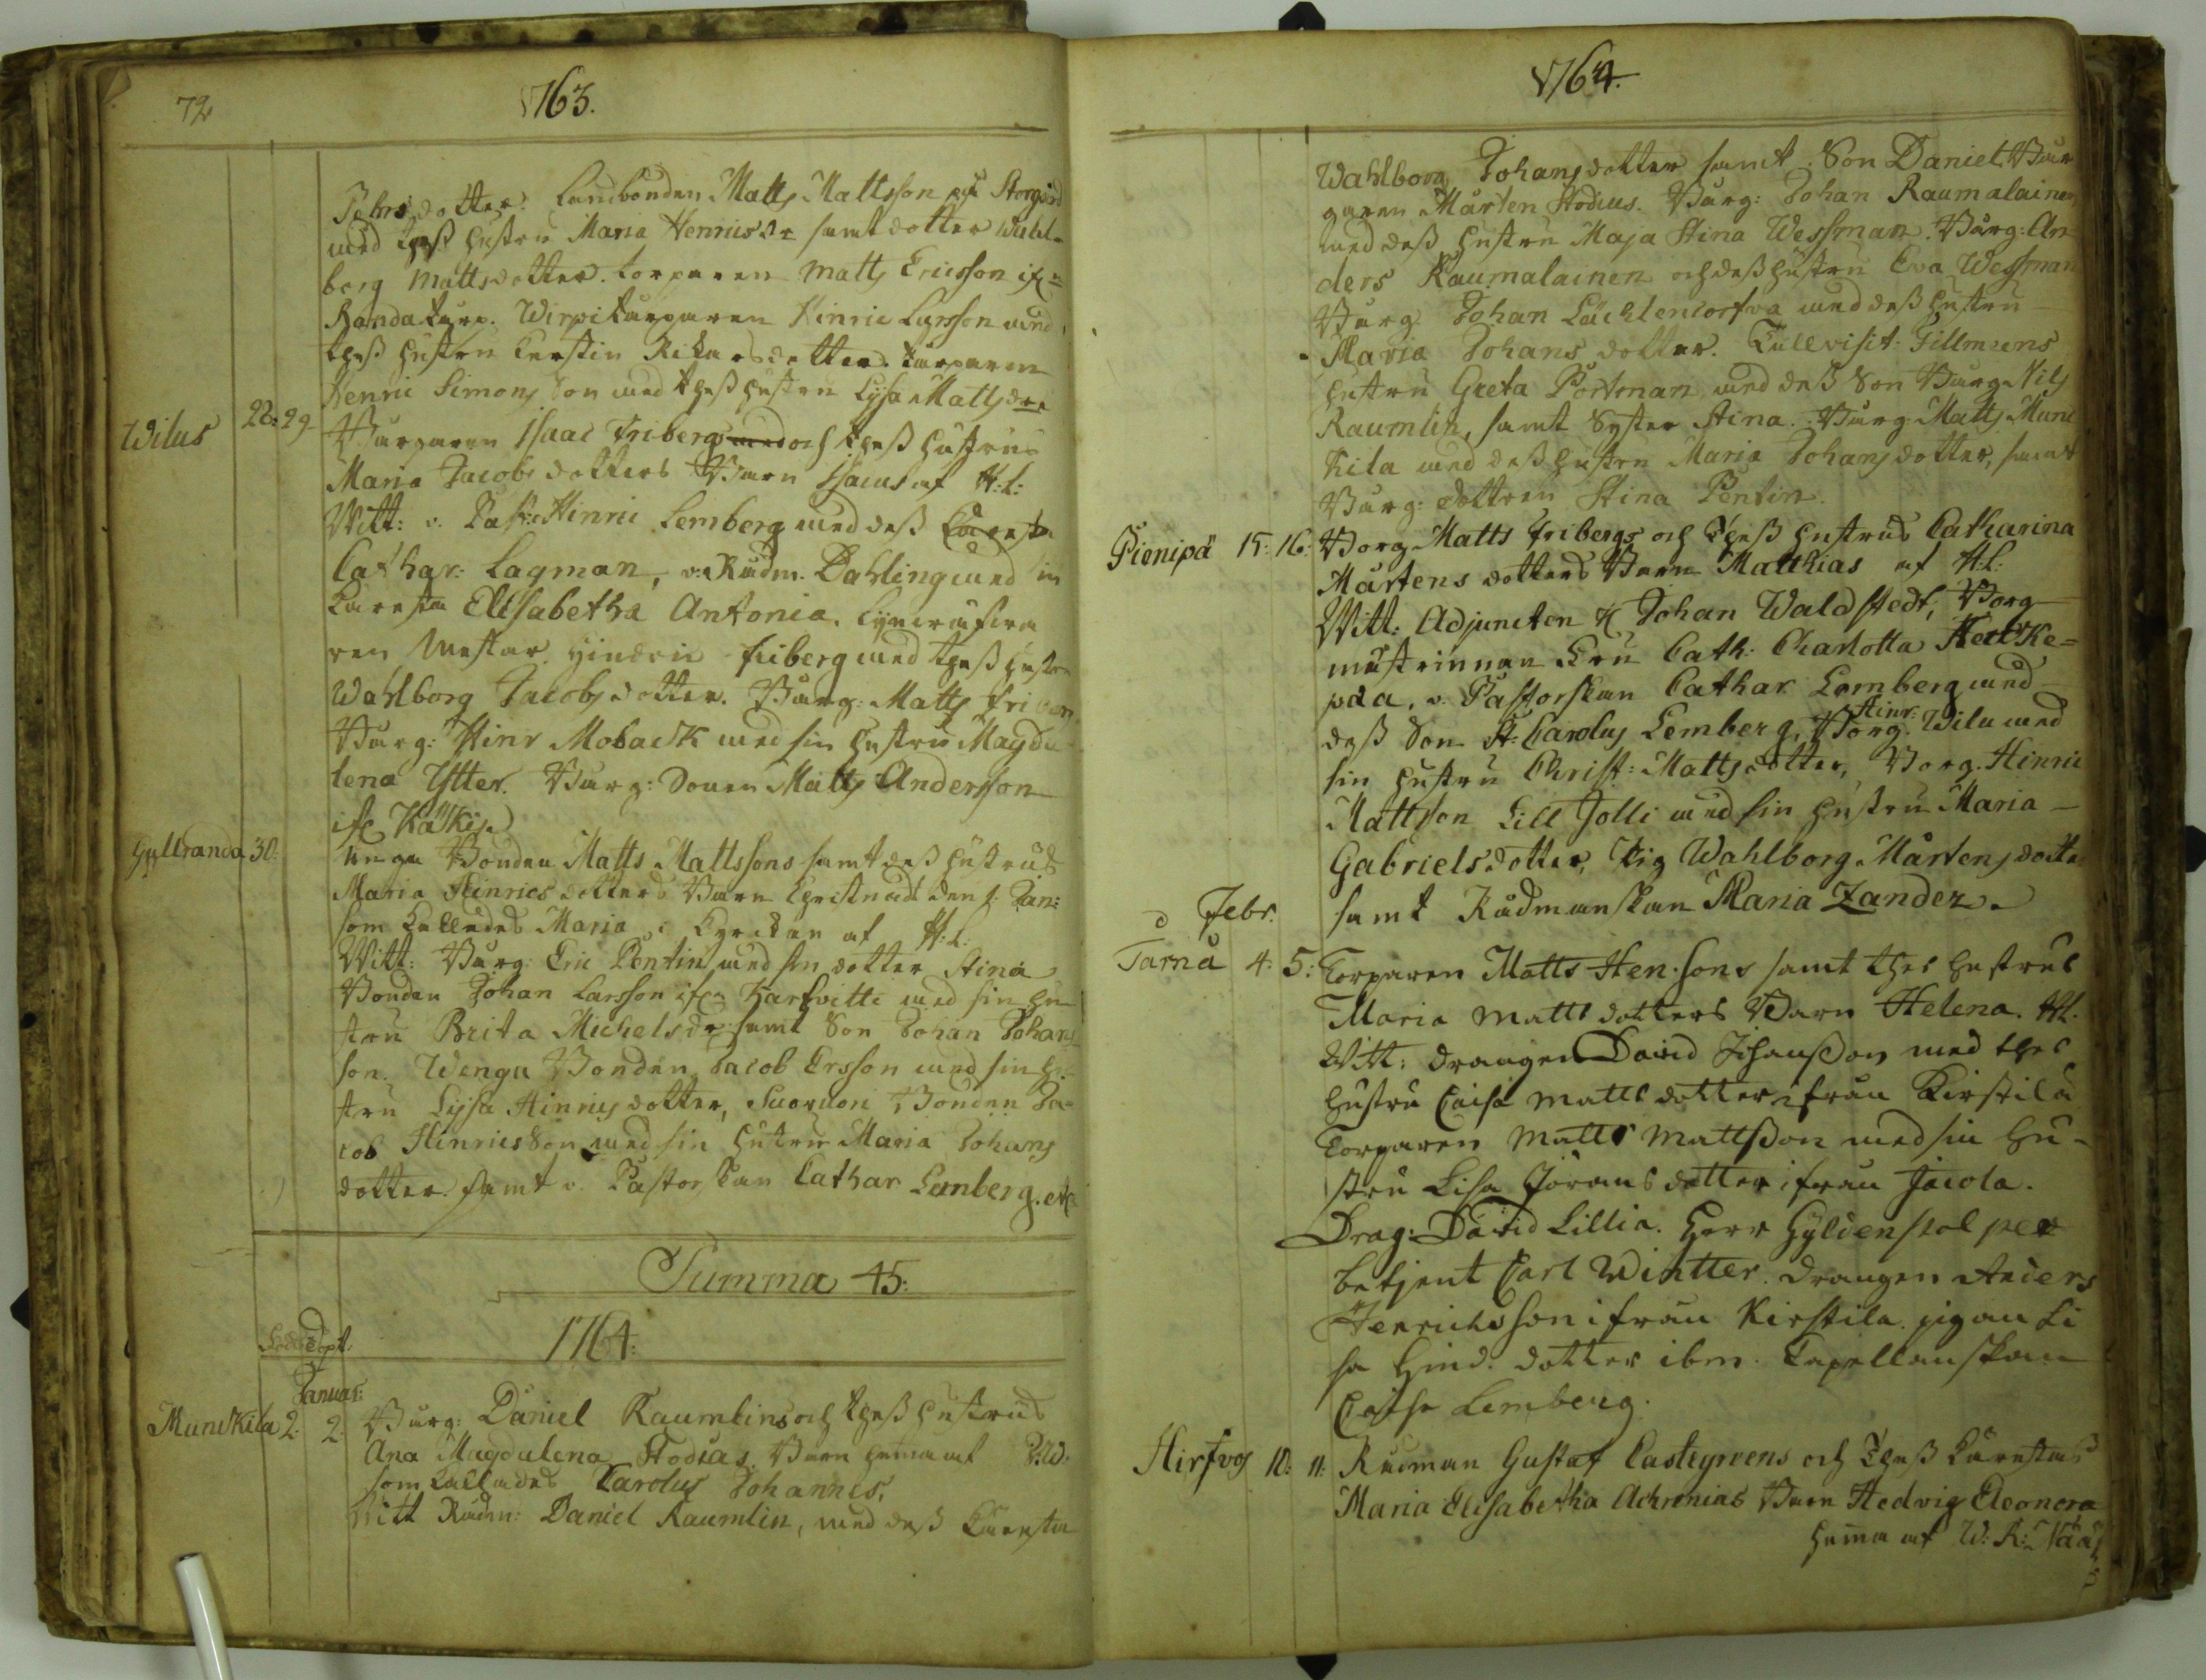 72
1763.
Pehrsdotter. Landbonden Matts Mattsson på Storgård
med thess hustru Maria Henricsdr samt dotter Wahl-
borg Mattsdotter. Torparen Matts Ericsson if:n
Randa torp. Wirpi torparen Hinric Larsson med
thess hustru Kerstin Rikarsdotter. Torparen
Henric Simons Son med thess hustru Lysa Mattsdr
Wilus 28: 29. Borgaren Isaac Fribergs med och thess hustrus
Maria Jacobsdotters Barn Isacus af H: L:
Witt: v. Past: Hinric Lemberg med dess Käresta
Cathar: Lagman, v: Rådm. Dahling med sin
Käresta Elisabetha Antonia.
ren Mestar Hindric friberg med thess hustru
Wahlborg Jacobsdotter. Borg: Matts friberg
Borg: Hinr Moback med sin hustru Magda-
lena Ytter. Borg: Sonen Matts Andersson
ifr Käkis.
Gyltranda 30: unga Bonden Matts Mattssons samt dess hustrus
Maria Hinricsdotters Barn Christnadt den 1. Jan:
som kallades Maria i Kyrckan af H: L:
Witt: Borg: Eric Pentin med sin dotter Stina
Bonden Johan Larsson ifrn Karsvitti med sin hu-
stru Brita Michelsdr samt Son Johan Johans-
son. Wenga Bonden Jacob Ersson med sin hu-
stru Lysa Hinricsdotter, Suoruori Bonden Ja-
cob Hinricsson med sin hustru Maria Johans
dotter. samt v. Pastorskan Cathar Lemberg. etc
Summa 45:
1764:
Född Döpt:
Januar:
Munckila 2. 2. Borg: Daniel Raumlins och thess hustrus
Ana Magdalena Stodias Barn hema af J: W:
som kallades Carolus Johannes.
Witt Rådm: Daniel Raumlin, med dess Käresta
1764.
Wahlborg Johansdotter samt Son Daniel. Bor-
garen Mårten Stodius. Borg: Johan Raumalainen
med dess hustru Maja Stina Wessman. Borg: An-
ders Raumalainen och dess hustru Eva Wessman
Borg Johan Lächtencorfva med dess hustru
Maria Johans dotter. Tullvisit: Tillmans
hustru Greta Portman med dess Son Borg Nils
Raumlin, samt Syster Stina. Borg Matts Munc
kila med dess hustru Maria Johansdotter, samt
Borg: dottren Stina Pentin.
Pienipä 15: 16: Borg Matts Fribergs och Thess hustrus Catharina
Mårtens dotters Barn Matthias af H: L:
Witt: Adjuncten H Johan Waldstedt, Borg
mästrinnan Fru Cath: Charlotta
v. Pastorskan Cathar Lemberg med
dess Son St: Carolus Lemberg, Borg. Hinr: Wilu med
sin hustru Christ: Mattsdotter, Borg. Hinric
Mattsson Lill Jolli med sin hustru Maria
Gabrielsdotter, Pig Wahlborg Mårtensdotter
samt Rådmanskan Maria Zander.
Febr.
Tarna 4: 5: Torparen Matts Hen.sons samt thes hustrus
Maria Matts dotters Barn Helena. HL.
Witt: Drängen David Johansson med thes
hustru Caisa Matts dotter ifrån Kirstila
Torparen Matts Mattsson med sin hu-
stru Lisa Jörans dotter ifrån Jacola.
Drag: David Lillia. Herr Gyldenstolpes
betjent Carl Wintter. Drängen Anders
Henrichsson ifrån Kirstila. pigan Li
sa Hind. dotter ibm. Capellanskan
Caisa Lemberg.
Hirfvog 10: 11: Rådman Gustaf Castegrens och Thess Kärestas
Maria Elisabetha Achrenias Barn Hedvig Eleonora
hema af W: R: Nääs